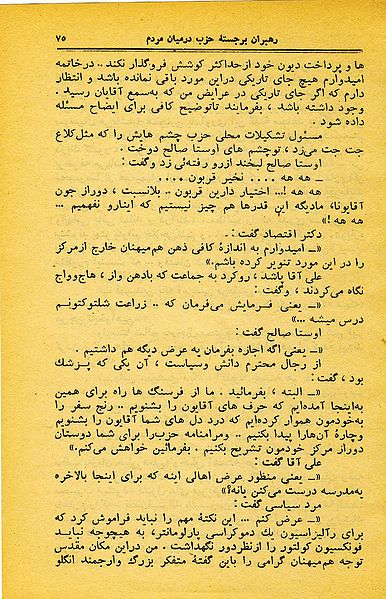 رهبران برجستهٔ حزب درمیان مردم ۷۵
ها و پرداخت دیون خود ازحداکثر کوشش فروگذار نکند .. درخاتمه
امیدوارم هیچ جای تاریکی دراین مورد باقی نمانده باشد و انتظار
دارم که اگر جای تاریکی در عرایض من که به‌سمع آقایان رسید .
وجود داشته باشد ، بفرمایند تاتوضیح کافی برای ایضاح مسئله
داده شود .
مسئول تشکیلات محلی حزب چشم هایش را که مثل‌کلاغ
جت جت می‌زد ، توچشم های اوستا صالح دوخت .
اوستا صالح لبخند ازرو رفته‌ئی زد وگفت :
ــ هه هه .... نخیر قربون ....
ــ هه هه !... اختیار دارین قربون .. بلانسبت ، دوراز جون
آقایونا، مادیگه این قدرها هم چیز نیستیم که اینارو نفهمیم ...
هه هه !»
دکتر اقتصاد گفت :
«ــ امیدوارم به اندازهٔ کافی ذهن هم‌میهنان خارج ازمرکز
را در این مورد تنویر کرده باشم.»
علی آقا باشد ، روکرد به جماعت که بادهن واز ، هاج‌وواج
نگاه می‌کردند ، وگفت :
«ــ یعنی فرمایش می‌فرمان که .. زراعت شلتوکتونم
درس میشه ...»
اوستا صالح گفت :
«ــ یعنی اگه اجازه بفرمان یه عرض دیگه هم داشتیم .
از رجال محترم دانش وسیاست ، آن یکی که پزشك
بود ، گفت :
«ــ البته ، بفرمائید . ما از فرسنگ ها راه برای همین
به‌اینجا آمده‌ایم که حرف های آقایون را بشنویم .. رنج سفر را
به‌خودمون هموار کرده‌ایم که درد دل های شما آقایون را بشنویم
وچارهٔ آن‌هارا پیدا بکنیم .. ومرامنامه حزب‌را برای شما دوستان
دوراز مرکز خودمون تشریح بکنیم . بفرمائین خواهش می‌کنم.»
علی آقا گفت :
«ــ یعنی منظور عرض اهالی اینه که برای اینجا بالاخره
یه‌مدرسه درست می‌کنن یانه؟»
مرد سیاسی گفت :
«ــ عرض کنم ... این نکتهٔ مهم را نباید فراموش کرد که
برای رآلیزاسیون یك دموکراسی پارلومانتر، به هیچوجه نبایـد
فونکسیون کولتور را ازنظردور نگهداشت . من دراین مکان مقدس
توجه هم‌میهنان گرامی را باین گفتهٔ متفکر بزرگ وارجمند انگلو